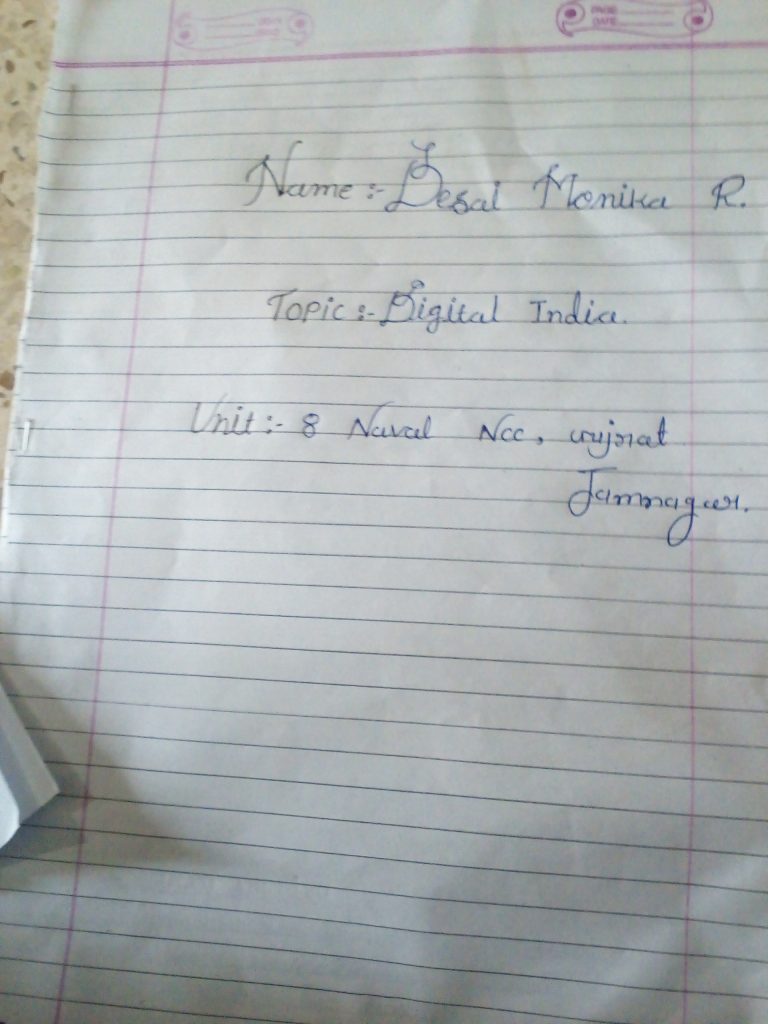 PAGE
DATE
Name :- Desai Monika R.
Topic :- Digital India.
Unit :- 8 Naval Ncc, Gujrat
Jamnagar.